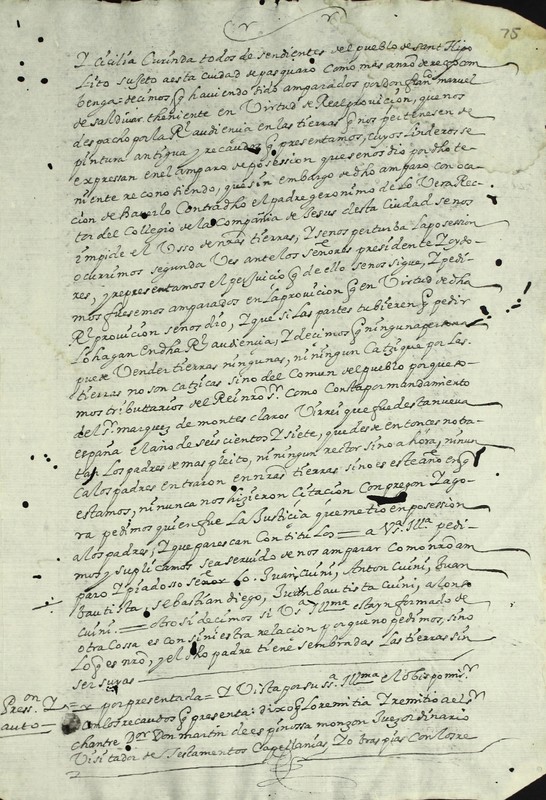 75
Y Cicilia Curinda todos desendientes del pueblo de sant Hipo
Lito sujeto a esta ciudad de pasquaro como mas a nro dereco com
benga = decimos q haviendo sido amparados por don franco manuel
de saldivar theniente en Virtud de Real provicion, que nos
despacho por la Rl audiencia en las tierras q nos pertenesen de
pintura antigua y recaudos q presentamos, cuyos linderos se
expressan en el amparo de possession que se nos dio por dho te
niente reconosiendo, que sin embargo de dho amparo con oca
cion de haverlo contradho el padre geronimo de lo Vera Rec
tor del collegio de la compañia de Jesus desta Ciudad se nos
impide el Usso de nras tierras, y se nos perturba la possession
ocurrimos segunda Ves ante los señores presidente Y oydo-
res, y representamos el perjuicio q de ello se nos sigue, Y pedi
mos fuesemos amparados en la provicion q en Virtud de dha
Rl provicion se nos dio, Y que si las partes tubieren q pedir
Lo hagan en dha Rl audiencia, Y decimos q ninguna persona
prede Vender tierras ningunas, ni ningun Catzique por las
tierras no son catzicas sino del Comun del pueblo porque so-
mos tributtarios del Rei nro sr. como consta por mandamiento
del sr marquez de montes claros Virrei que fue desta nueva
españa el año de seiscientos Y siete, que desde entonces no tra-
tan Los padres demas pleito, ni ningun retor sino a hora, ni nun
ca los padres entraron en nras tierras sino es este año en q
estamos, ni nunca nos hizieron Citacion con pregon Y ago-
ra pedimos quien fue La Justicia que metio en possession
a los padres, Y que parescan con titulos = a Vsa Illma pedi-
mos y suplicamos sea servido de nos amparar como nro am
paro Y piadoso señor so. Juan Cuini, Anton Cuini, Juan
bautista, sebastian diego, Juan bautista Cuini, alonso
Cuini. = otro si decimos si Vsa Illma esta ynformado de
otra Cossa es con siniestra relacion porque no pedimos, sino
Lo q es nro, y el dho padre tiene sembradas Las tierras sin
ser suyas
Presson Y
auto
por presentada = Y Vista por su sa Illma el obispo mi sr.
con los recaudos q presenta: dixo q lo remitia Y remitio al sr
chantre Dor Don martin de espinossa monzon Juez ordinario
Visitador de Testamentos Capellanias Y obras pias con los re